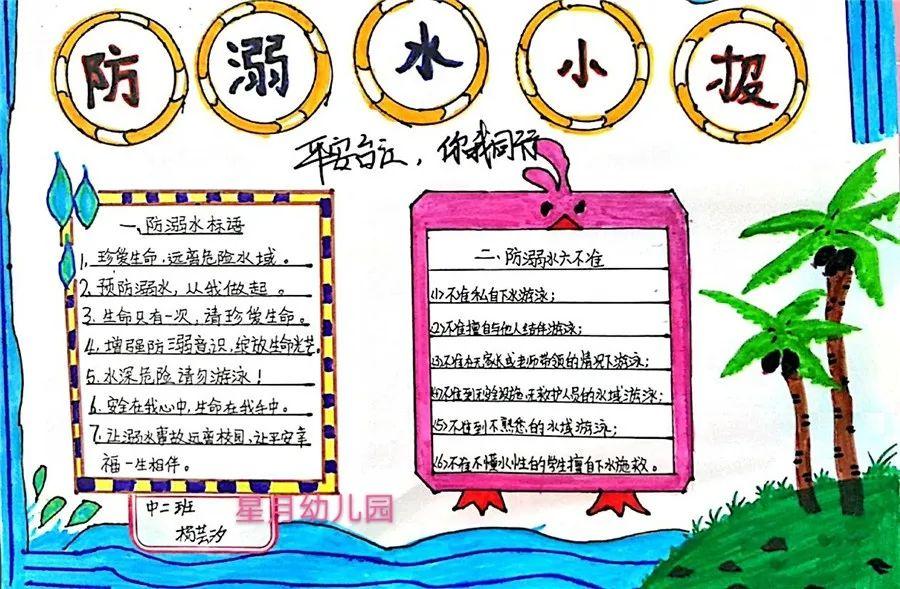 防溺水小报
平安台江，你我同行
一、防溺水标语
1、珍爱生命，远离危险水域。
2、预防溺水，从我做起。
3、生命只有一次，请珍爱生命。
4、增强防溺意识，绽放生命光芒
5、水深危险请勿游泳！
6、安全在我心中，生命在我手中。
7、让溺水事故远离校园，让平安幸
福一生相伴。
中二班
杨芸汐
星月幼儿园
二、防溺水六不准
(1)不准私自下水游泳；
(2)不准擅自与他人结伴游泳；
(3)不准在无家长或老师带领的情况下游泳；
(4)不准到无安全设施、无救护人员的水域游泳；
(5)不准到不熟悉的水域游泳；
(6)不准不懂水性的学生擅自下水施救。